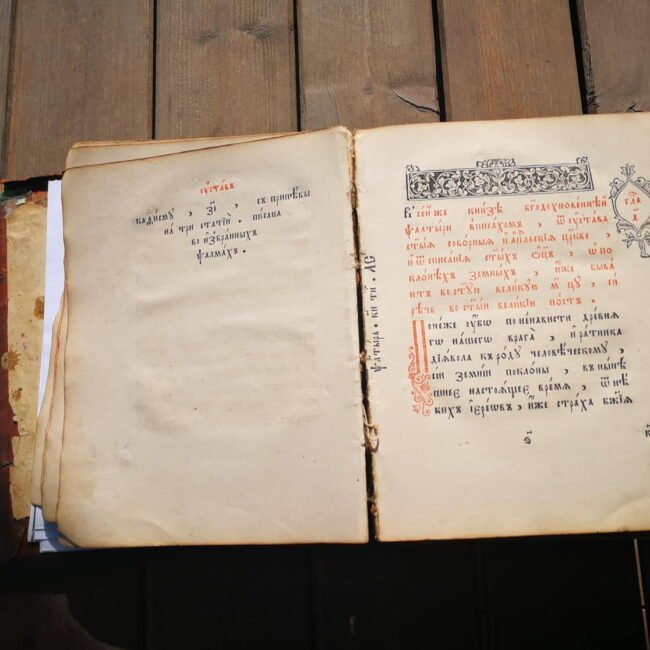 оуста́въ
каѳи́сму , з҃і , съ припѣ́вы
на три статїѝ . пи́сана
во и҆збра́нныхъ
ѱалма́хъ .
В̾ се́й же кни́зѣ бг҃одхнове́ннѣи
ѱалты́ри вписа́хомъ , ѿ оуста́ва
ст҃ы́ѧ собо́рныѧ и҆ а҆пⷭ҇льскїѧ цр҃кве ,
и҆ ѿ писа́нїѧ ст҃ы́хъ ѻ҆ц҃ъ , ѡ҆ по
кло́нѣхъ земны́хъ , и҆̀же быва́
ютъ во ст҃у́ю вели́кую м҃цу , си
рѣ́чь во ст҃ы́и вели́кїи по́стъ .
Поне́же оу҆́бѡ по не́нависти дре́внѧ
гѡ на́шегѡ врага̀ , и҆ ра́тника
дїѧ́вола къ ро́ду человѣ́ческому ,
сїѝ земні́и покло́ны , въ ны́нѣ
шнее настоѧ́щее вре́мѧ , ѿ нѣ́
кихъ і҆ере́ѡвъ , и҆̀же стра́ха бж҃їѧ
ѱалты́рь .
гла